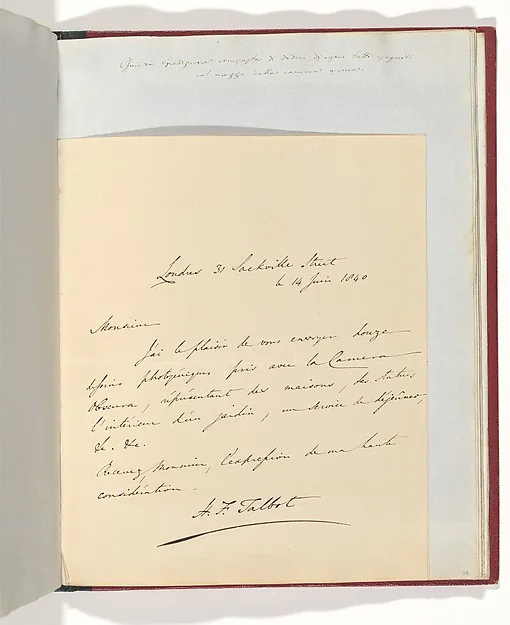 di dodici disegni tutti eseguiti
col mezzo della camera
Londres 31 Sackville Street
le 14 Juin 1840
Monsieur
J'ai le plaisir de vous envoyer douze
dessins photogéniques pris avec la Camera
Obscura, représentant des maisons, des statues
l'intérieur d'un jardin, un service de déjeûner,
&c. &c.
Recevez, Monsieur, l'expression de ma haute
considération
H. F. Talbot